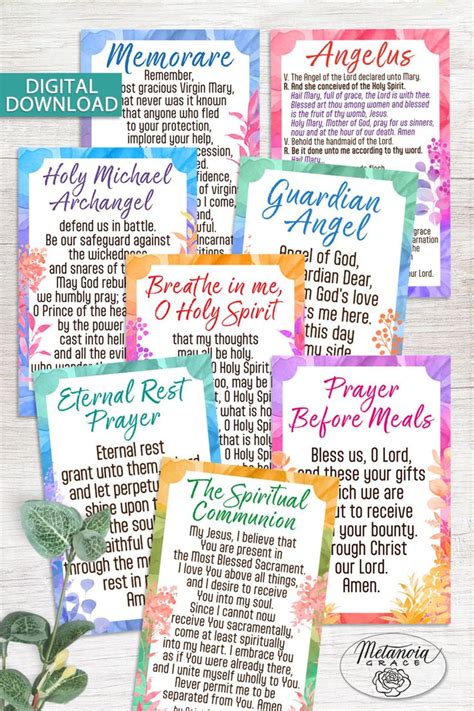 DIGITAL
DOWNLOAD
Memorare
Remember,
most gracious Virgin Mary,
that never was it known
that anyone who fled
to your protection,
implored your help,
Angelus
V. The Angel of the Lord declared unto Mary.
R. And she conceived of the Holy Spirit.
Hail Mary, full of grace, the Lord is with thee.
Blessed art thou among women and blessed
is the fruit of thy womb, Jesus.
Holy Mary, Mother of God, pray for us sinners,
now and at the hour of our death. Amen
V. Behold the handmaid of the Lord.
R. Be it done unto me according to thy word.
Hail Mary
Holy Michael
Archangel
defend us in battle.
Be our safeguard against
the wickedness
and snares of the
May God rebuke
we humbly pray;
O Prince of the
by the power
cast into hell
and all the evil
who wander
Guardian
Angel
Angel of God,
Guardian Dear,
om God's love
ts me here.
this day
my side
Breathe in me,
O Holy Spirit
that my thoughts
may all be holy.
O Holy Spirit,
Eternal Rest
Prayer
Eternal rest
grant unto them,
and let perpetual
shine upon
faithful
rest in
Amen
Prayer
Before Meals
Bless us, O Lord,
and these your gifts
which we are
to receive
your bounty.
through Christ
our Lord.
Amen.
The Spiritual
Communion
My Jesus, I believe that
You are present in
the Most Blessed Sacrament.
I love You above all things,
and I desire to receive
You into my soul.
Since I cannot now
receive You sacramentally,
come at least spiritually
into my heart. I embrace You
as if You were already there,
and unite myself wholly to You.
Never permit me to be
separated from You. Amen
Metanoia
GRACE